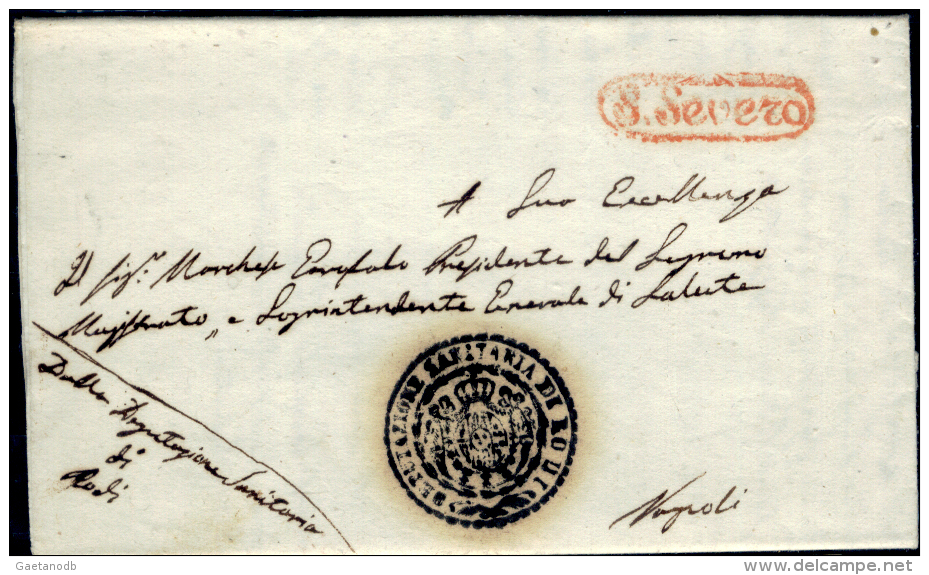 S. Severo
A Sua Eccellenza
Il Sig.r Marchese Garofalo Presidente del Supremo
Magistrato, e Soprintendente Generale di Salute
DEPUTAZIONE SANITARIA DI RODI
Dalla Deputazione Sanitaria
di
Rodi
Napoli
Gaetanodb
delcampe.net